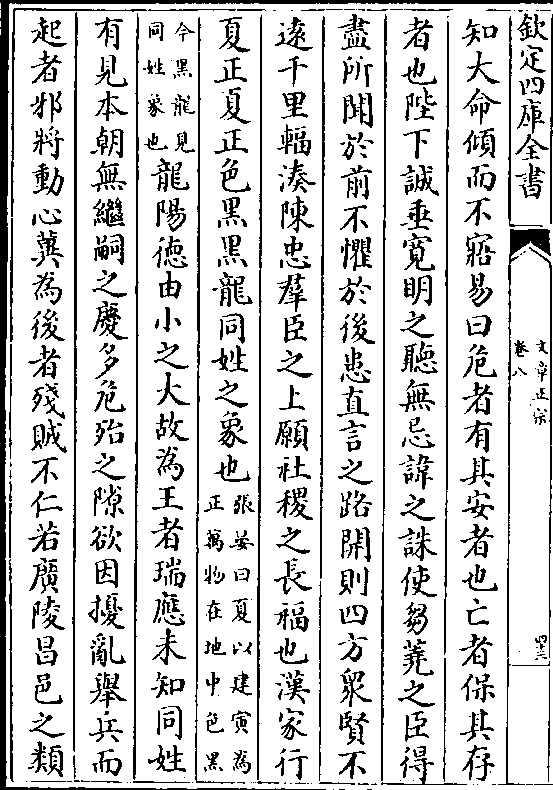 欽定四庫全書
文章正宗
卷八
四十三
知大命傾而不寤易曰危者有其安者也亡者保其存
者也陛下誠垂寛明之聽無忌諱之誅使芻蕘之臣得
盡所聞於前不懼於後患直言之路開則四方衆賢不
遠千里輻湊陳忠羣臣之上願社稷之長福也漢家行
夏正夏正色黑黑龍同姓之象也張晏曰夏以建寅為正萬物在地中色黑
今黑龍見同姓象也龍陽徳由小之大故為王者瑞應未知同姓
有見本朝無繼嗣之慶多危殆之隙欲因擾亂舉兵而
起者邪將動心冀為後者殘賊不仁若廣陵昌邑之類